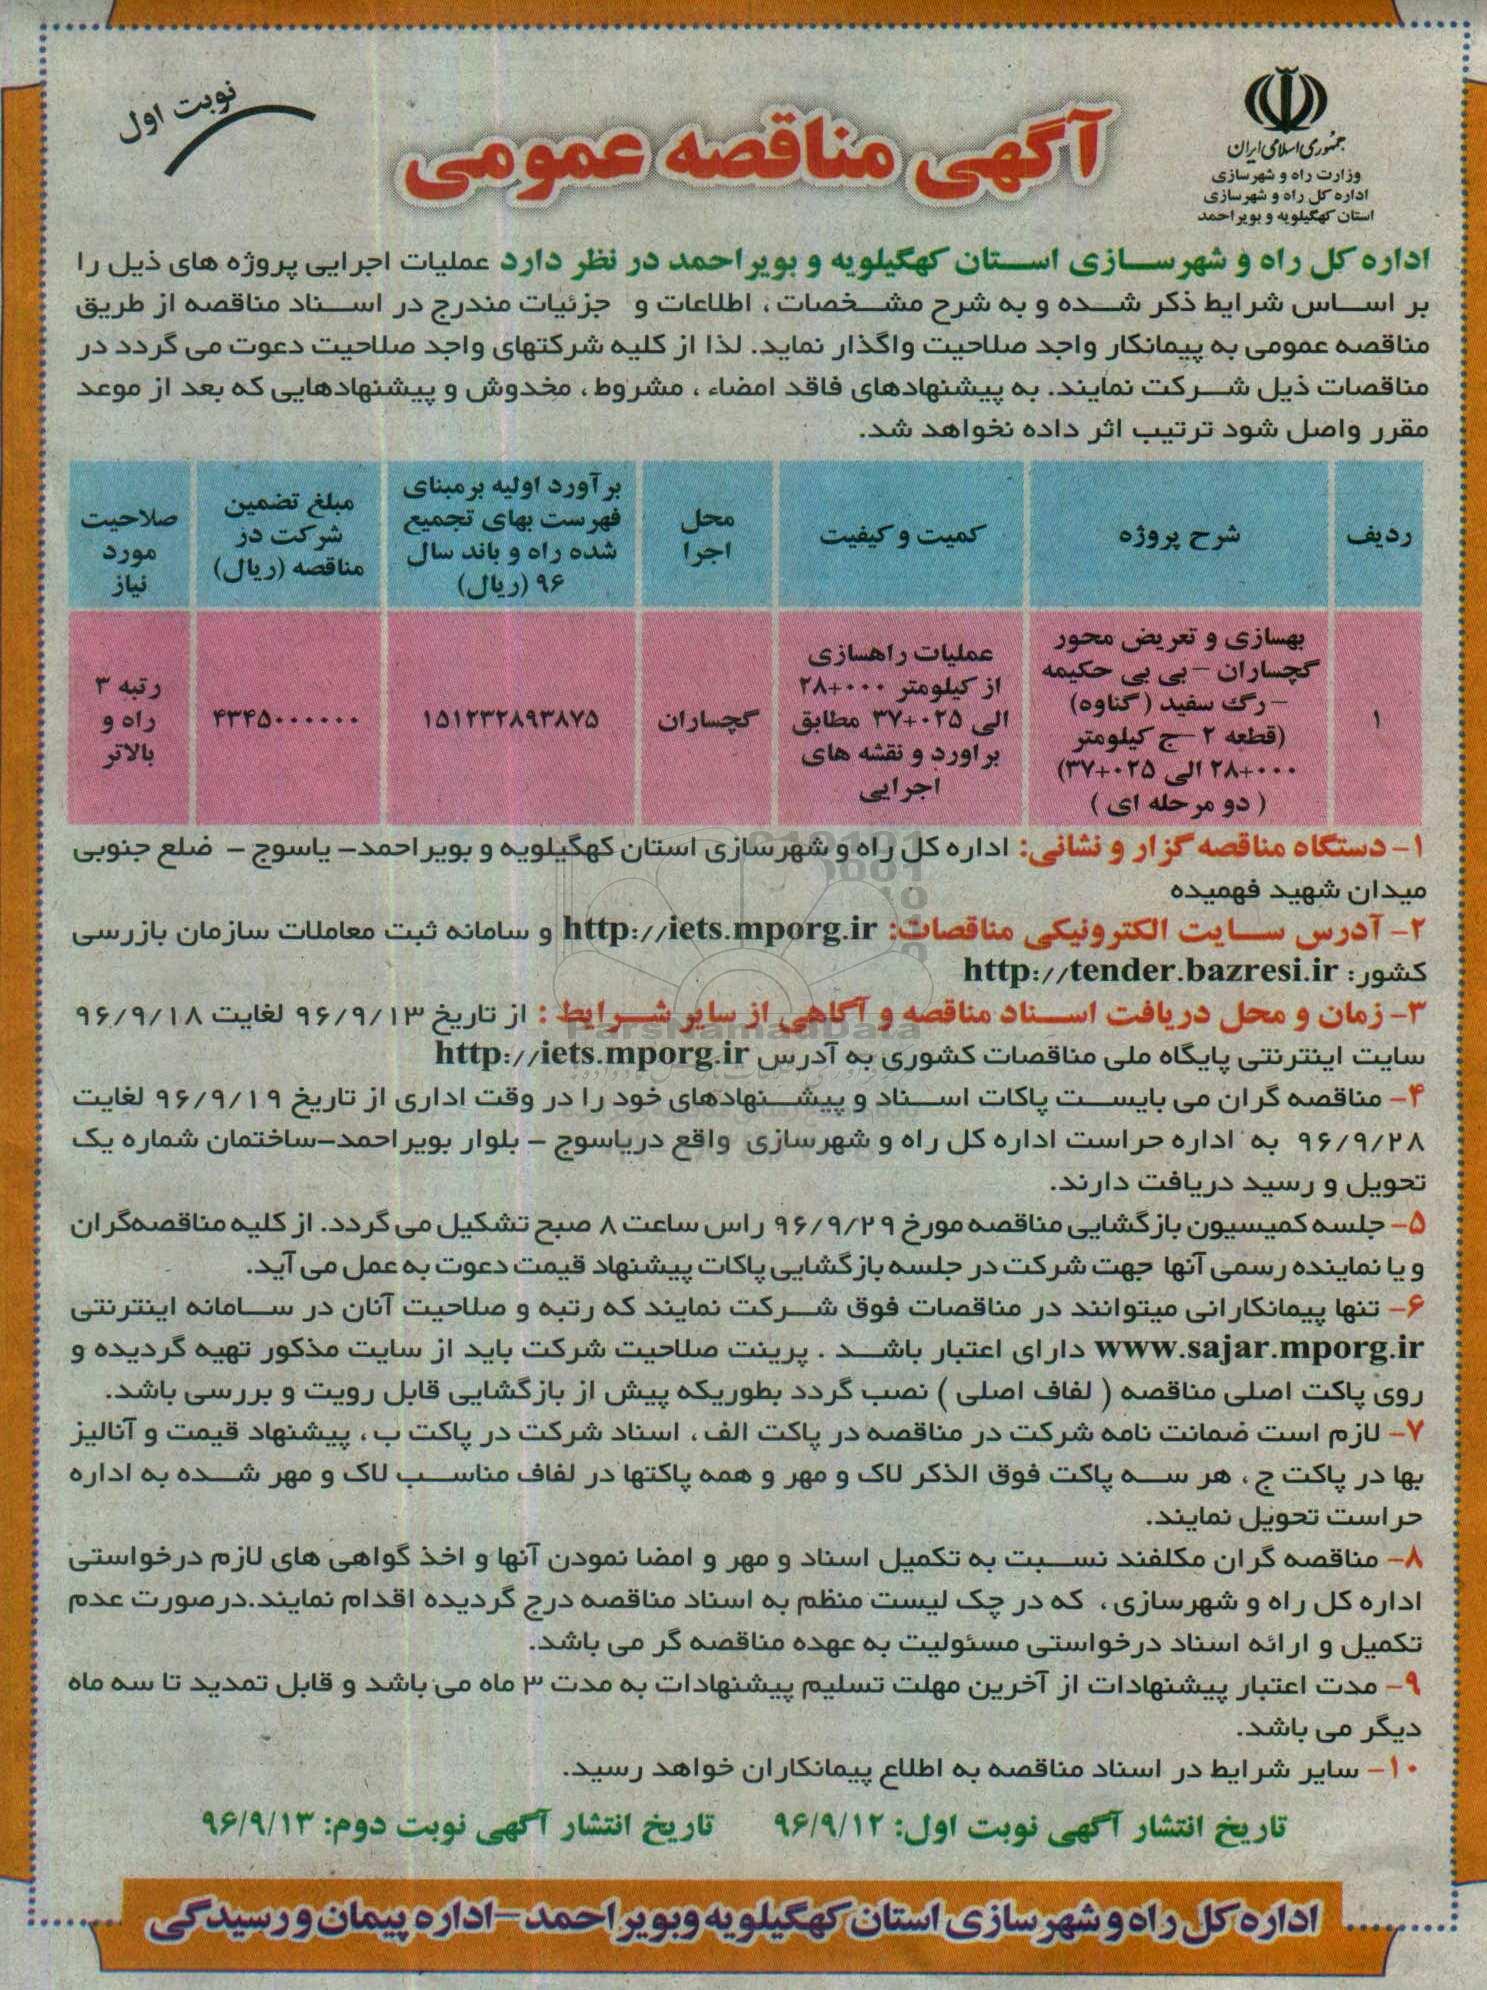 نوبت اول
جمهوری اسلامی ایران
وزارت راه و شهرسازی
اداره کل راه و شهرسازی
استان کهگیلویه و بویراحمد
آگهی مناقصه عمومی
اداره کل راه و شهرسازی استان کهگیلویه و بویراحمد در نظر دارد عملیات اجرایی پروژه های ذیل را
بر اساس شرایط ذکر شده و به شرح مشخصات ، اطلاعات و جزئیات مندرج در اسناد مناقصه از طریق
مناقصه عمومی به پیمانکار واجد صلاحیت واگذار نماید. لذا از کلیه شرکتهای واجد صلاحیت دعوت می گردد در
مناقصات ذیل شرکت نمایند. به پیشنهادهای فاقد امضاء ، مشروط ، مخدوش و پیشنهادهایی که بعد از موعد
مقرر واصل شود ترتیب اثر داده نخواهد شد.
ردیف
شرح پروژه
کمیت و کیفیت
محل
اجرا
برآورد اولیه برمبنای
فهرست بهای تجمیع
شده راه و باند سال
۹۶ (ریال)
مبلغ تضمین
شرکت در
مناقصه (ریال)
صلاحیت
مورد
نیاز
۱
بهسازی و تعریض محور
گچساران – بی بی حکیمه
– رگ سفید (گناوه)
(قطعه ۲ –ج کیلومتر
۲۸+۰۰۰ الی ۳۷+۰۲۵)
( دو مرحله ای )
عملیات راهسازی
از کیلومتر ۲۸+۰۰۰
الی ۳۷+۰۲۵ مطابق
برآورد و نقشه های
اجرایی
گچساران
۱۵۱۲۳۲۸۹۳۸۷۵
۴۳۴۵۰۰۰۰۰۰
رتبه ۳
راه و
بالاتر
۱- دستگاه مناقصه گزار و نشانی: اداره کل راه و شهرسازی استان کهگیلویه و بویراحمد– یاسوج – ضلع جنوبی
میدان شهید فهمیده
۲- آدرس سایت الکترونیکی مناقصات: http://iets.mporg.ir و سامانه ثبت معاملات سازمان بازرسی
کشور: http://tender.bazresi.ir
۳- زمان و محل دریافت اسناد مناقصه و آگاهی از سایر شرایط : از تاریخ ۹۶/۹/۱۳ لغایت ۹۶/۹/۱۸
سایت اینترنتی پایگاه ملی مناقصات کشوری به آدرس http://iets.mporg.ir
۴- مناقصه گران می بایست پاکات اسناد و پیشنهادهای خود را در وقت اداری از تاریخ ۹۶/۹/۱۹ لغایت
۹۶/۹/۲۸ به اداره حراست اداره کل راه و شهرسازی واقع دریاسوج – بلوار بویراحمد–ساختمان شماره یک
تحویل و رسید دریافت دارند.
۵- جلسه کمیسیون بازگشایی مناقصه مورخ ۹۶/۹/۲۹ راس ساعت ۸ صبح تشکیل می گردد. از کلیه مناقصه‌گران
و یا نماینده رسمی آنها جهت شرکت در جلسه بازگشایی پاکات پیشنهاد قیمت دعوت به عمل می آید.
۶- تنها پیمانکارانی میتوانند در مناقصات فوق شرکت نمایند که رتبه و صلاحیت آنان در سامانه اینترنتی
www.sajar.mporg.ir دارای اعتبار باشد . پرینت صلاحیت شرکت باید از سایت مذکور تهیه گردیده و
روی پاکت اصلی مناقصه ( لفاف اصلی ) نصب گردد بطوریکه پیش از بازگشایی قابل رویت و بررسی باشد.
۷- لازم است ضمانت نامه شرکت در مناقصه در پاکت الف ، اسناد شرکت در پاکت ب ، پیشنهاد قیمت و آنالیز
بها در پاکت ج ، هر سه پاکت فوق الذکر لاک و مهر و همه پاکتها در لفاف مناسب لاک و مهر شده به اداره
حراست تحویل نمایند.
۸- مناقصه گران مکلفند نسبت به تکمیل اسناد و مهر و امضا نمودن آنها و اخذ گواهی های لازم درخواستی
اداره کل راه و شهرسازی ، که در چک لیست منظم به اسناد مناقصه درج گردیده اقدام نمایند.درصورت عدم
تکمیل و ارائه اسناد درخواستی مسئولیت به عهده مناقصه گر می باشد.
۹- مدت اعتبار پیشنهادات از آخرین مهلت تسلیم پیشنهادات به مدت ۳ ماه می باشد و قابل تمدید تا سه ماه
دیگر می باشد.
۱۰- سایر شرایط در اسناد مناقصه به اطلاع پیمانکاران خواهد رسید.
تاریخ انتشار آگهی نوبت اول: ۹۶/۹/۱۲ تاریخ انتشار آگهی نوبت دوم: ۹۶/۹/۱۳
اداره کل راه و شهرسازی استان کهگیلویه وبویراحمد –اداره پیمان و رسیدگی
ParsNamadData